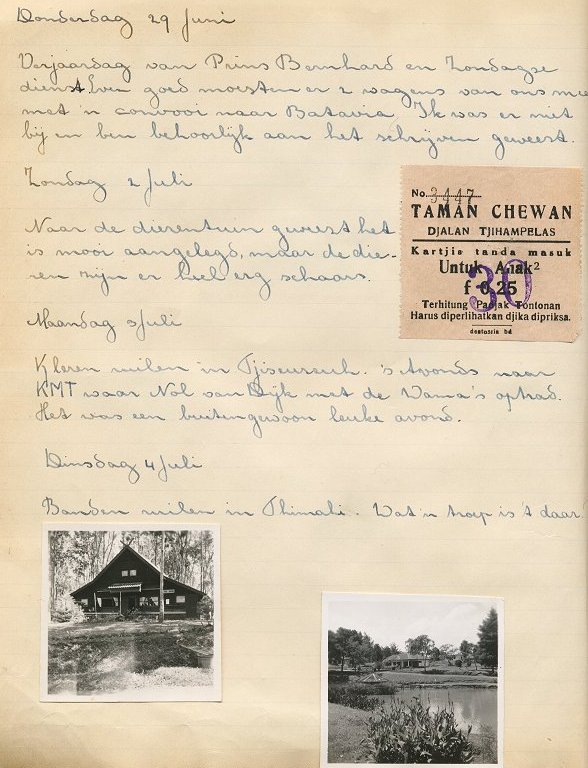 Donderdag 29 Juni
Verjaardag van Prins Bernhard en Zondagse
dienst. Even goed moesten er 2 wagens van ons mee
met 'n convooi naar Batavia. Ik was er niet
bij en ben behoorlijk aan het schrijven geweest.
Zondag 2 Juli
Naar de dierentuin geweest het
is mooi aangelegd, maar de die-
ren zijn er heel erg schaars.
No. 3447
TAMAN CHEWAN
DJALAN TJIHAMPELAS
Kartjis tanda masuk
Untuk Anak²
f 0.25
30
Terhitung Padjak Tontonan
Harus diperlihatkan djika dipriksa.
Maandag 3 Juli
Kleren ruilen in Tjiseureuh. 's Avonds naar
KMT waar Nol van Dijk met de Wama's optrad.
Het was een buitengewoon leuke avond.
Dinsdag 4 Juli
Banden ruilen in Thimahi. Wat 'n troep is 't daar.